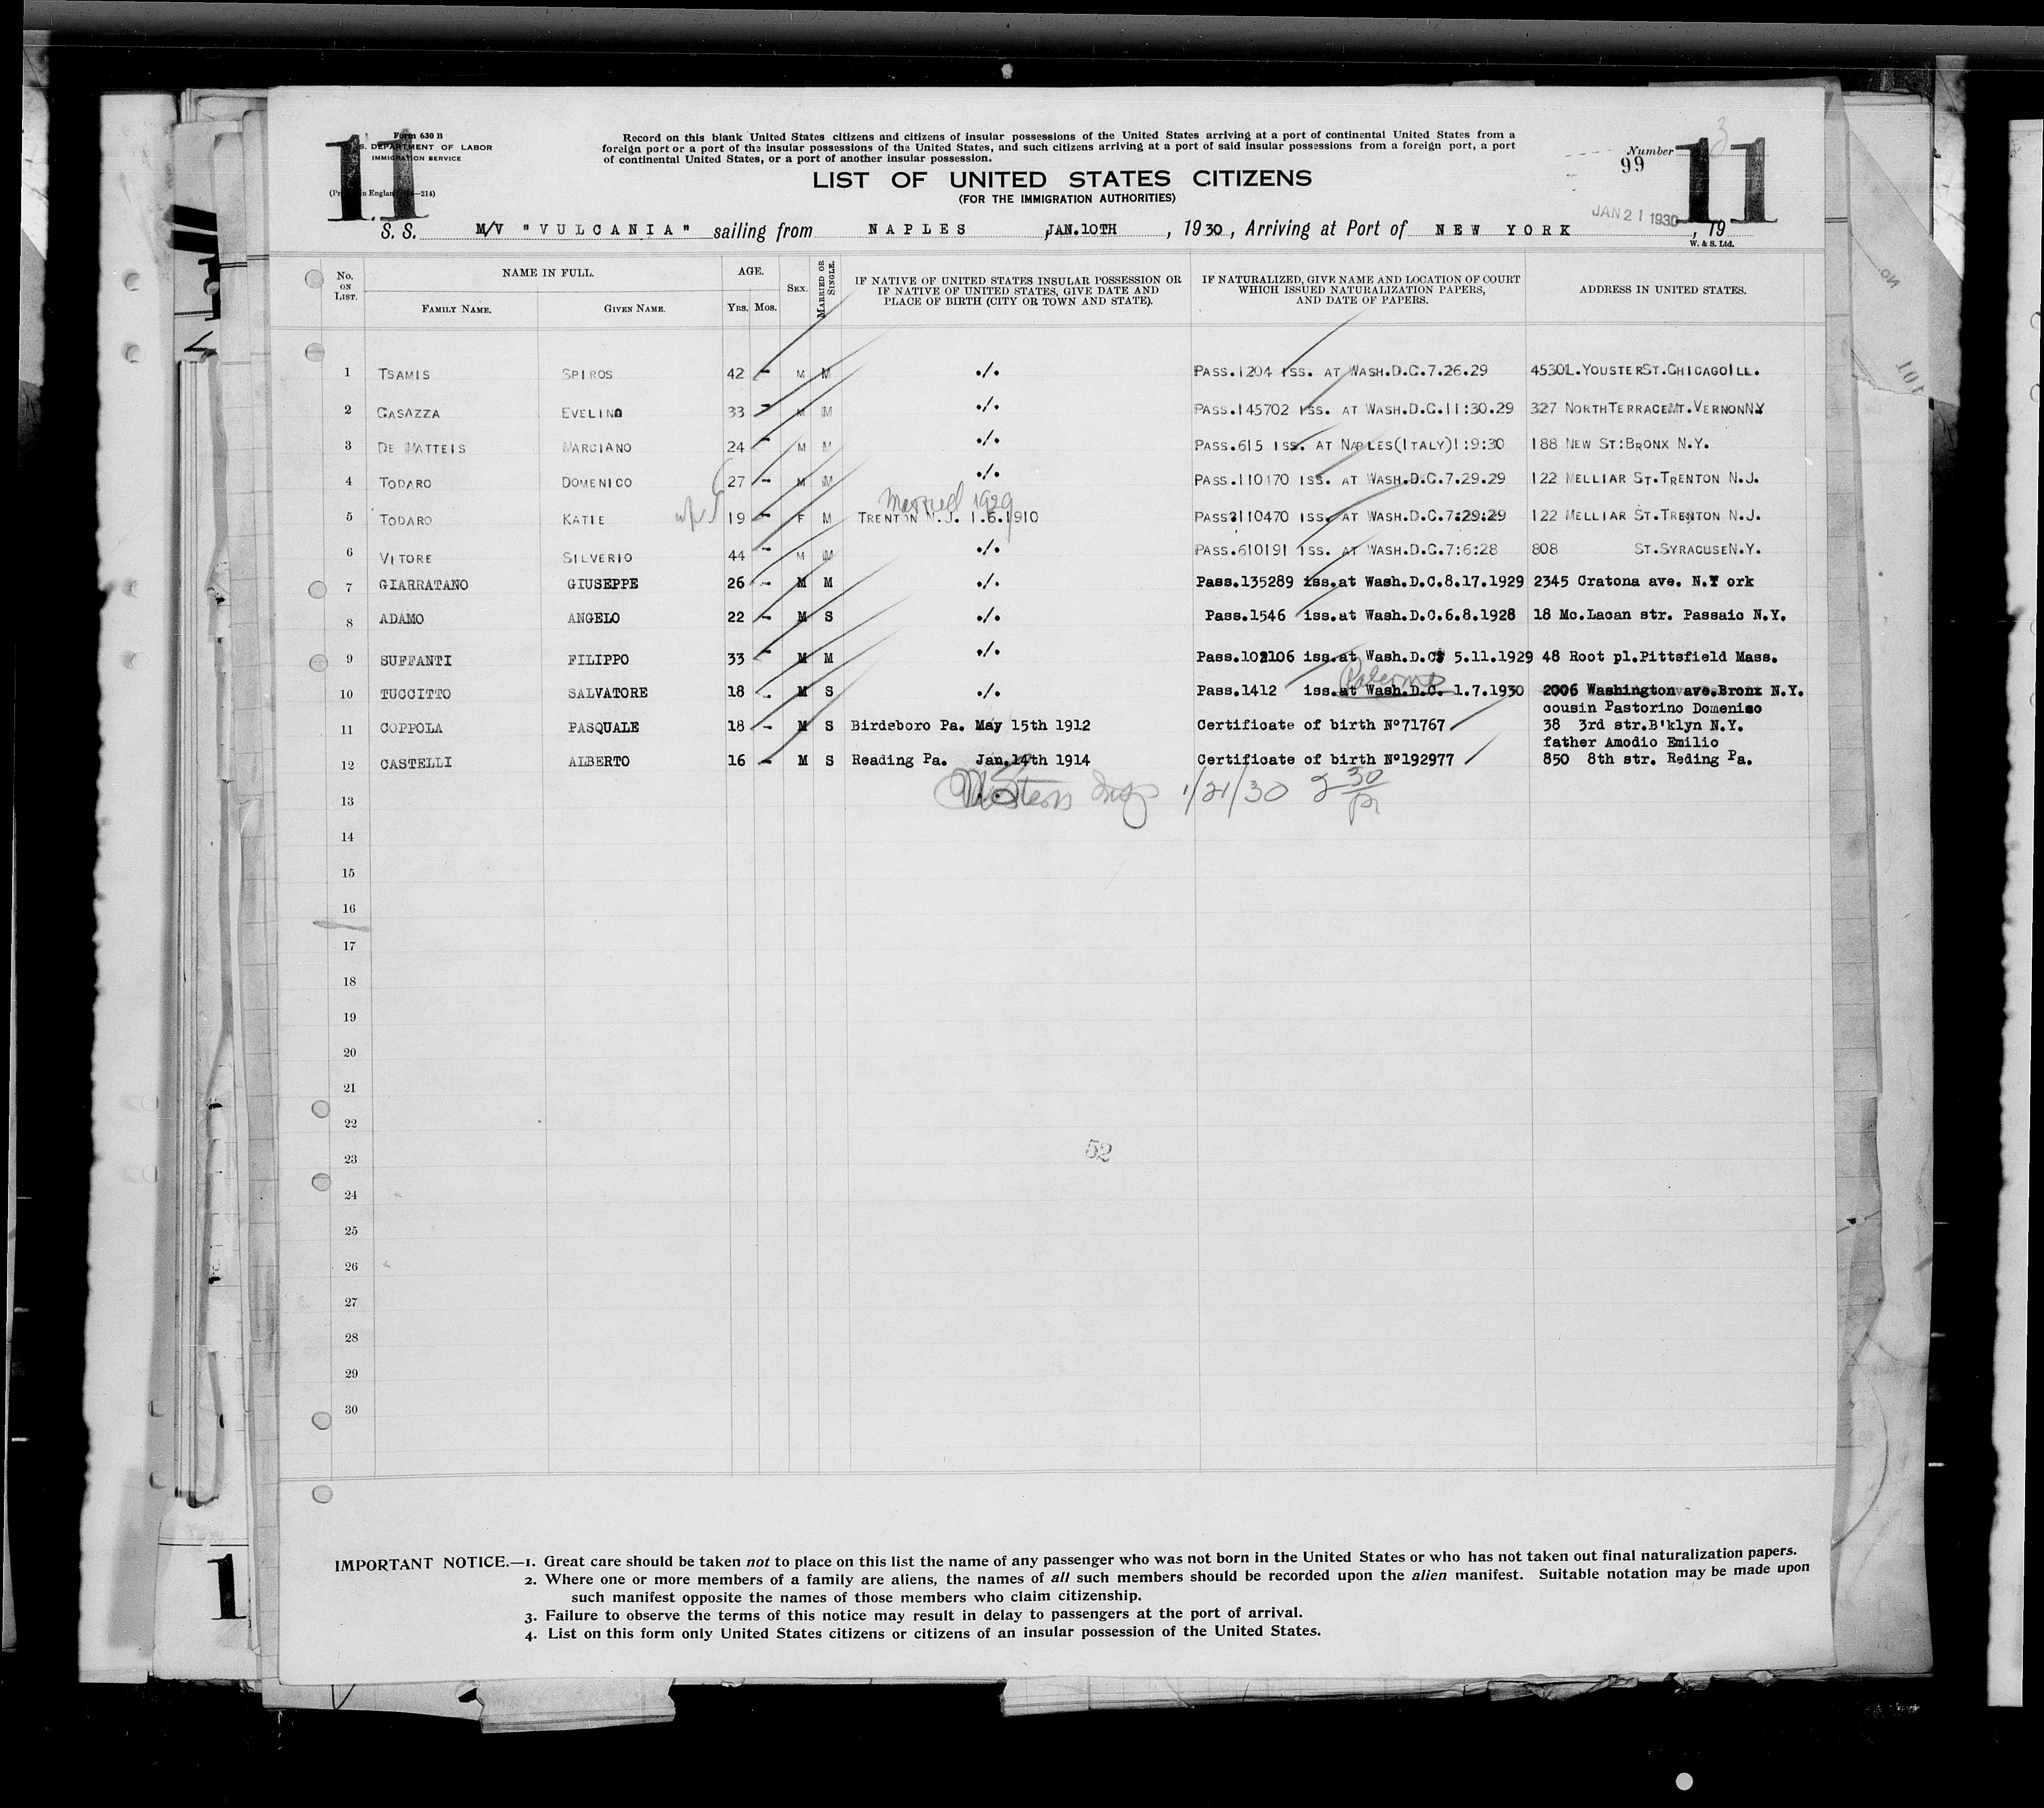 11
Form 630 B
S. DEPARTMENT OF LABOR
IMMIGRATION SERVICE
Record on this blank United States citizens and citizens of insular possessions of the United States arriving at a port of continental United States from a
foreign port or a port of the insular possessions of the United States, and such citizens arriving at a port of said insular possessions from a foreign port, a port
of continental United States, or a port of another insular possession.
Number 3
99
11
LIST OF UNITED STATES CITIZENS
(FOR THE IMMIGRATION AUTHORITIES)
JAN 21 1930
S. S. M/V "VULCANIA" sailing from NAPLES, JAN.10TH, 1930, Arriving at Port of NEW YORK, 19
W. & S. Ltd.
No. ON LIST. NAME IN FULL. AGE. SEX. MARRIED OR SINGLE. IF NATIVE OF UNITED STATES INSULAR POSSESSION OR IF NATIVE OF UNITED STATES, GIVE DATE AND PLACE OF BIRTH (CITY OR TOWN AND STATE). IF NATURALIZED, GIVE NAME AND LOCATION OF COURT WHICH ISSUED NATURALIZATION PAPERS, AND DATE OF PAPERS. ADDRESS IN UNITED STATES.
FAMILY NAME. GIVEN NAME. YRS. MOS.
1 TSAMIS SPIROS 42 - M M ./. PASS.1204 ISS. AT WASH.D.C.7.26.29 4530L.YOUSTERST.CHICAGOILL.
2 CASAZZA EVELINO 33 - M M ./. PASS.145702 ISS. AT WASH.D.C.11:30.29 327 NORTHTERRACEMT.VERNONN.Y
3 DE MATTEIS MARCIANO 24 - M M ./. PASS.615 ISS. AT NAPLES(ITALY)1:9:30 188 NEW ST:BRONX N.Y.
4 TODARO DOMENICO 27 - M M ./. PASS.110170 ISS. AT WASH.D.C.7.29.29 122 MELLIAR ST.TRENTON N.J.
Married 1929
5 TODARO KATIE 19 - F M TRENTON N.J. 1.6.1910 PASS?110470 ISS. AT WASH.D.C.7:29:29 122 MELLIAR ST.TRENTON N.J.
6 VITORE SILVERIO 44 - M M ./. PASS.610191 ISS. AT WASH.D.C.7:6:28 808 ST.SYRACUSEN.Y.
7 GIARRATANO GIUSEPPE 26 - M M ./. Pass.135289 iss.at Wash.D.C.8.17.1929 2345 Cratona ave. N.Y ork
8 ADAMO ANGELO 22 - M S ./. Pass.1546 iss.at Wash.D.C.6.8.1928 18 Mc.Lacan str. Passaic N.Y.
9 SUFFANTI FILIPPO 33 - M M ./. Pass.102106 iss.at Wash.D.C. 5.11.1929 48 Root pl.Pittsfield Mass.
Palermo
10 TUCCITTO SALVATORE 18 - M S ./. Pass.1412 iss.at Wash.D.C. 1.7.1930 2006 Washington ave.Bronx N.Y.
cousin Pastorino Domenico
11 COPPOLA PASQUALE 18 - M S Birdsboro Pa. May 15th 1912 Certificate of birth N°71767 38 3rd str.B'klyn N.Y.
father Amodio Emilio
12 CASTELLI ALBERTO 16 - M S Reading Pa. Jan.14th 1914 Certificate of birth N°192977 850 8th str. Reding Pa.
1/21/30 2 30
13
14
15
16
17
18
19
20
21
22
23
52
24
25
26
27
28
29
30
IMPORTANT NOTICE.—1. Great care should be taken not to place on this list the name of any passenger who was not born in the United States or who has not taken out final naturalization papers.
2. Where one or more members of a family are aliens, the names of all such members should be recorded upon the alien manifest. Suitable notation may be made upon
such manifest opposite the names of those members who claim citizenship.
3. Failure to observe the terms of this notice may result in delay to passengers at the port of arrival.
4. List on this form only United States citizens or citizens of an insular possession of the United States.